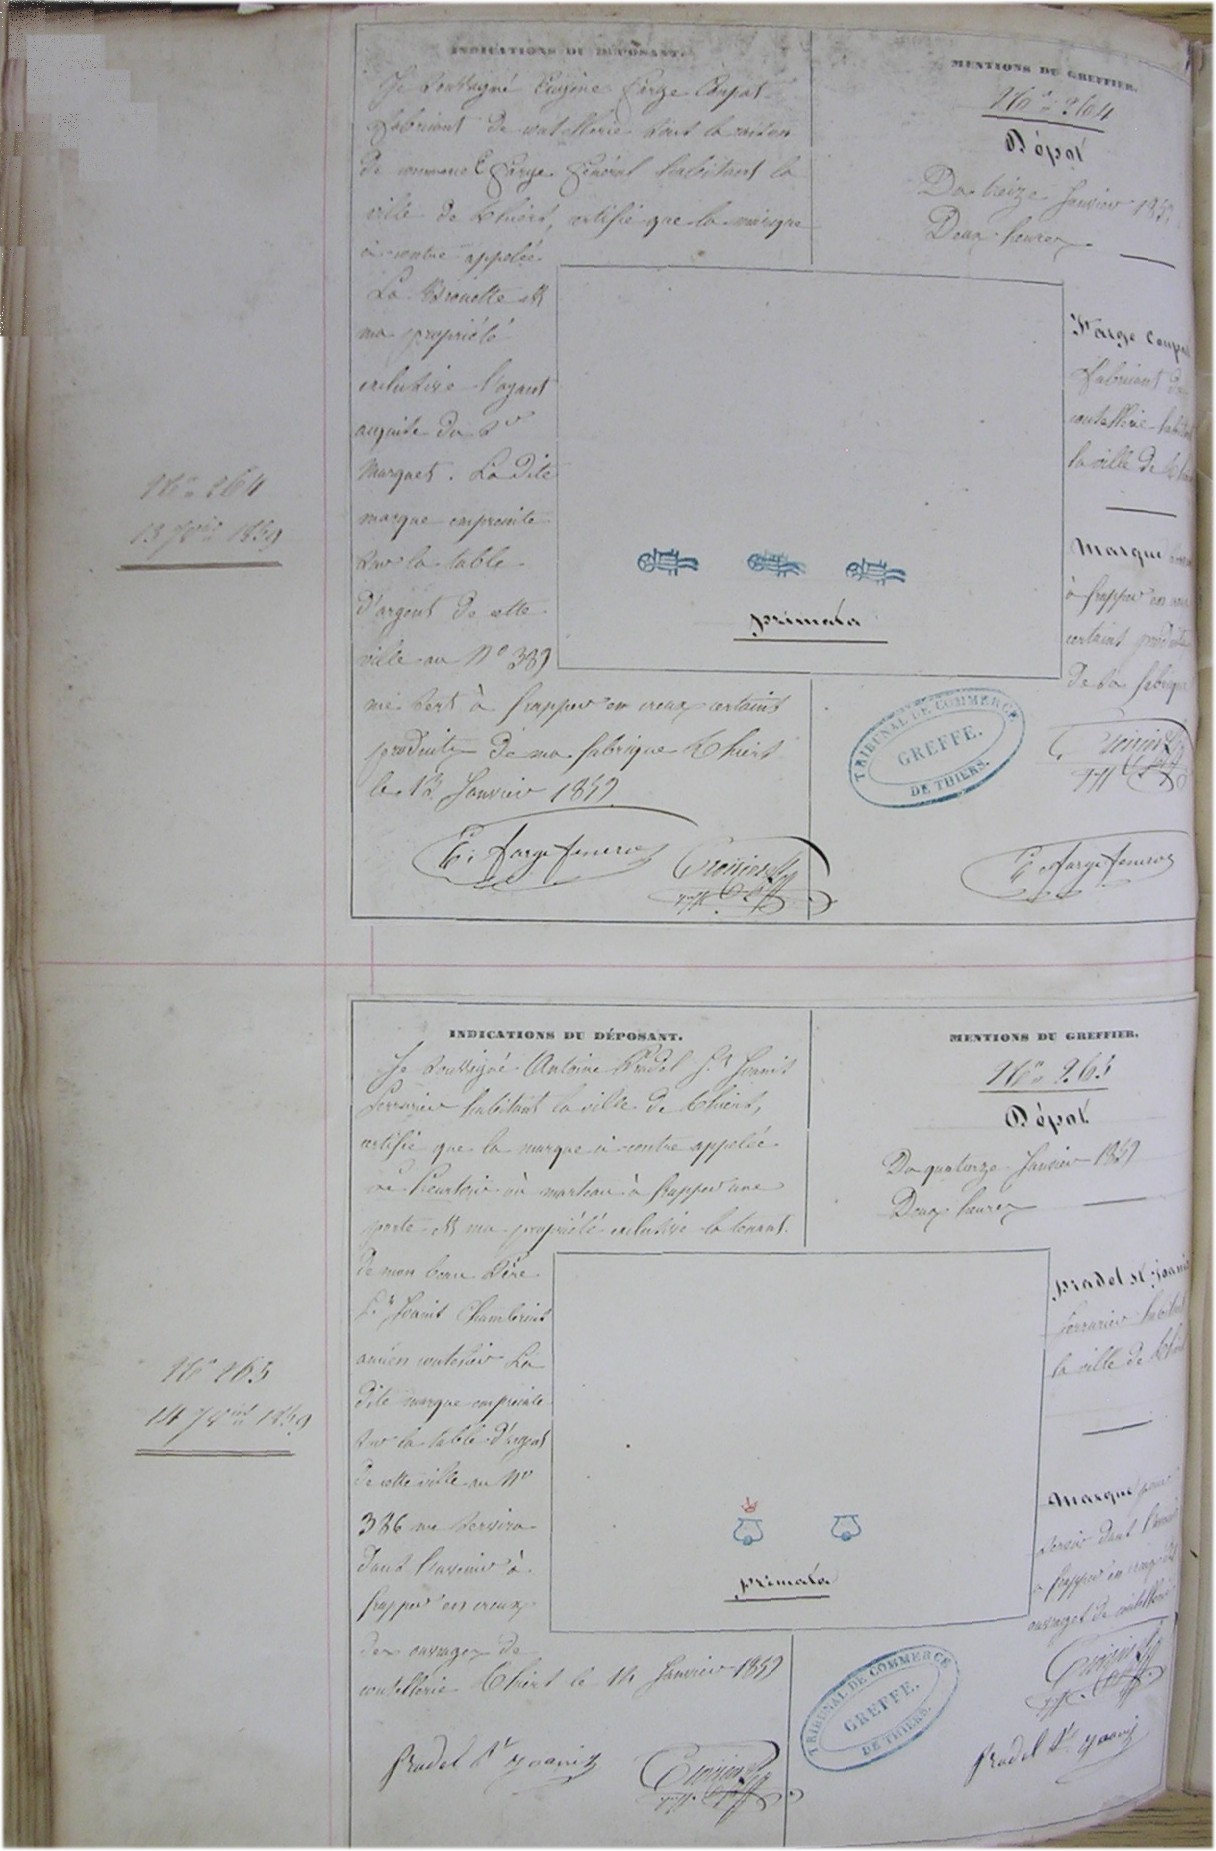 No 264
13 Jier 1859
INDICATIONS DU DÉPOSANT.
Je soussigné Eugène Farge Coupat
fabricant de coutellerie sous la raison
de commerce E Farge Féneral habitant la
ville de Thiers, certifie que la marque
ci contre appelée
La Brouette est
ma propriété
exclusive l'ayant
acquise du Sr
Marquet. La dite
marque empreinte
sur la table
d'argent de cette
ville au No 389
me sert à frapper en creux certains
produits de ma fabrique Thiers
le 13 Janvier 1859
E. Farge
primata
MENTIONS DU GREFFIER.
No 264
Dépot
Du treize Janvier 1859
Deux heures
Farge Coupat
fabricant de
coutellerie habitant
la ville de Thiers
Marque
à frapper en creux
certains produits
de sa fabrique
TRIBUNAL DE COMMERCE
GREFFE.
DE THIERS.
E. Farge
No 265
14 Jier 1859
INDICATIONS DU DÉPOSANT.
Je soussigné Antoine Pradel St Joanis
Serrurier habitant la ville de Thiers,
certifie que la marque ci contre appelée
Le heurtoir ou marteau à frapper une
porte est ma propriété exclusive la tenant
de mon beau Père
St Joanis Chambriat
ancien coutelier La
dite marque empreinte
sur la table d'argent
de cette ville au No
386 me servira
dans l'avenir à
frapper en creux
des ouvrages de
coutellerie Thiers le 14 Janvier 1859
Pradel St Joanis
primata
MENTIONS DU GREFFIER.
No 265
Dépot
Du quatorze Janvier 1859
Deux heures
Pradel St Joanis
Serrurier habitant
la ville de Thiers
Marque pour
servir dans l'avenir
à frapper en creux des
ouvrages de coutellerie
TRIBUNAL DE COMMERCE
GREFFE.
DE THIERS.
Pradel St Joanis